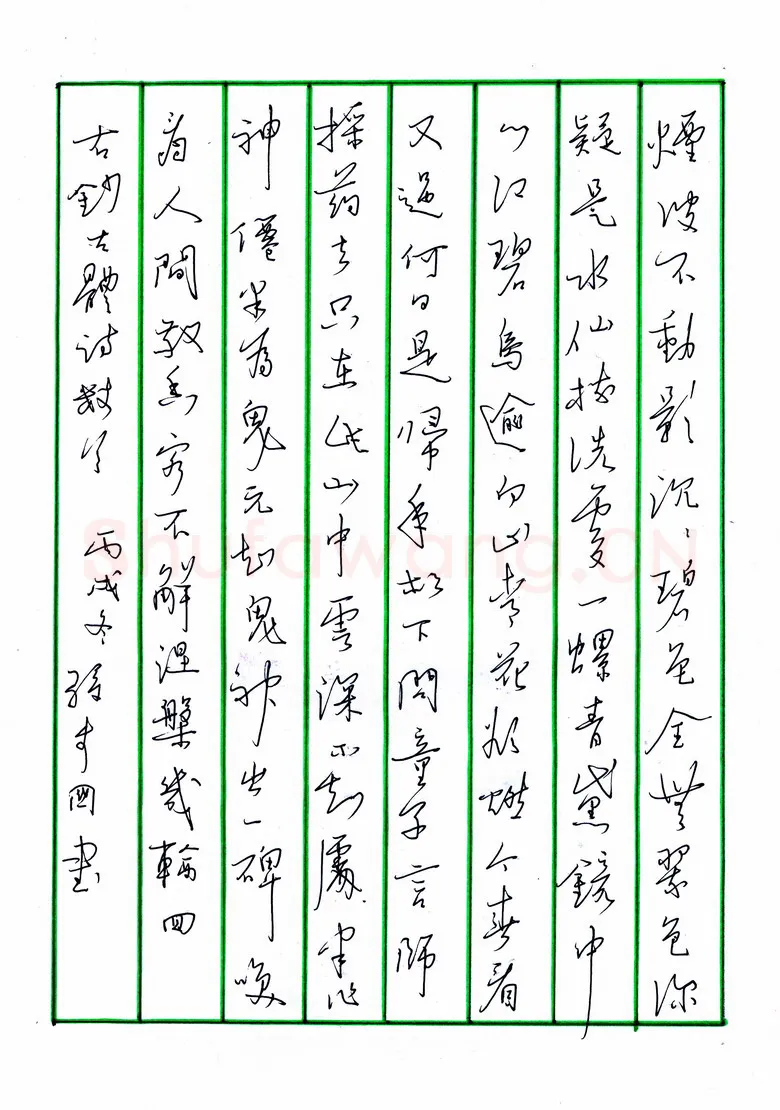 煙波不動影沉沉碧色全無翠色深
疑是水仙梳洗處一螺青黛鏡中
心江碧鳥逾白山青花欲燃今春看
又過何日是歸年松下問童子言師
採药去只在此山中雲深不知處半作
神僊半為鬼元知鬼神出一碑喚
人間敬香客不解涅槃幾輪回
右鈔古體诗數首 丙戌冬 國書
Shufawang.CN